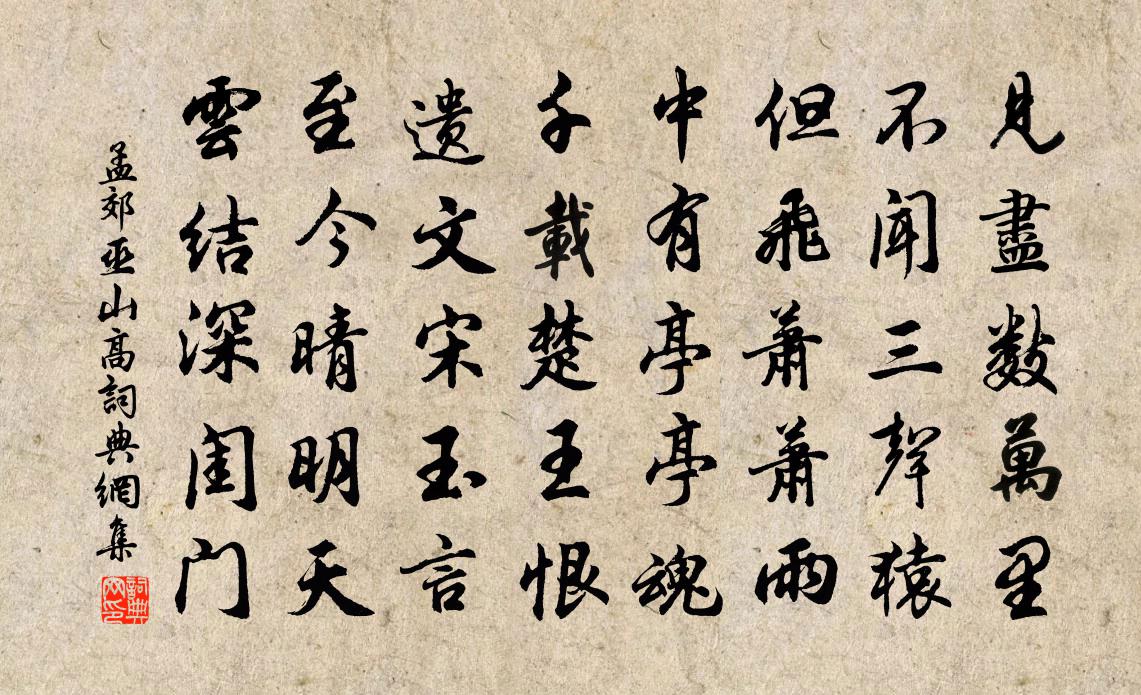 見盡數萬里
不聞三聲猿
但飛蕭蕭雨
中有亭亭魂
千載楚王恨
遗文宋玉言
至今晴明天
雲结深闺门
孟郊巫山高詞典網集
詞典
网印